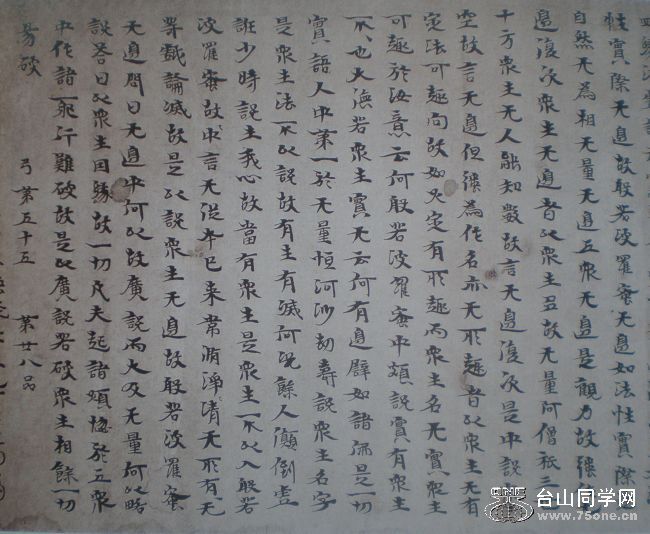 性實際无邊故般若波羅蜜无邊如法性實際
自然无為相无量无邊五衆无邊是觀力故強
邊復次衆生无邊者以衆生多故无量阿僧祇三
十方衆生无人能知數故言无邊復次是中說
空故言无邊但強為作名亦无所趣者以衆生无有
定法可趣向故如火定有所趣而衆生名无實衆生
可趣於汝意云何般若波羅蜜中頗說實有衆生
不不也大德若衆生實无云何有邊譬如諸佛是一切
實語人中第一於无量恒河沙劫壽說衆生名字
是衆生法不以說故有生有滅何況餘人顛倒虛
誑少時說生我心故當有衆生是衆生不以入般若
波羅蜜故中言无從本已来常清淨清无所有无
等戲論滅故是以說衆生无邊故般若波羅蜜
无邊問曰无邊中何以故廣說而大及无量何以略
說答曰以衆生因緣故一切凡夫起諸煩惱於五衆
中作諸邪行難破故是以廣說若破衆生相餘一切
易破
弓第五十五 第廿八品
台山同学网
www.75one.cn